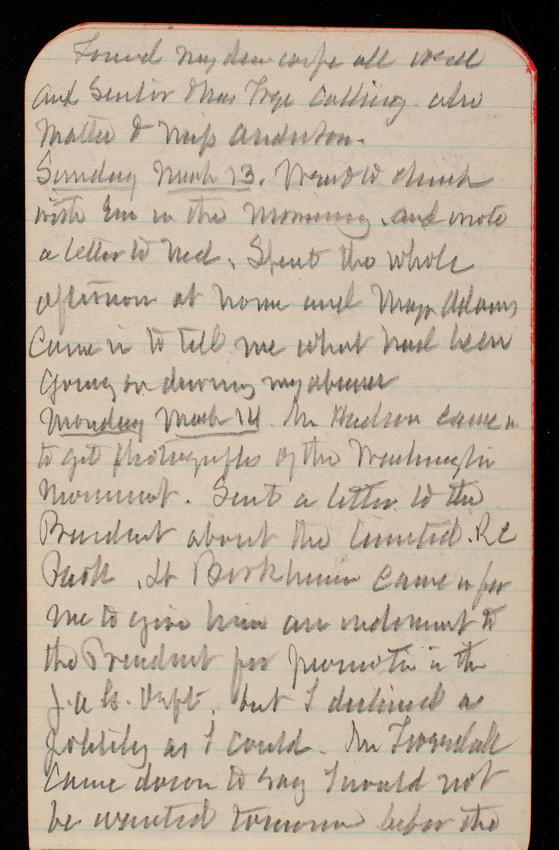 Found my dear wife all well
and Senator & Mrs Frye calling also
Mattie & Miss Anderson.
Sunday March 13. Went to church
with Em in the morning. and wrote
a letter to Ned. Spent the whole
afternoon at home and Major Adams
came in to tell me what had been
going on during my absence
Monday March 14 Mr Hudson came in
to get photographs of the Washington
Monument. Sent a letter to the
President about the limited. R C
Park. Lt came in for
me to give him an indorsement to
the President for promotion in the
J. A. G. Dept. but I declined as
politely as I could. Mr Truesdell
came down to say I would not
be wanted tomorrow before the